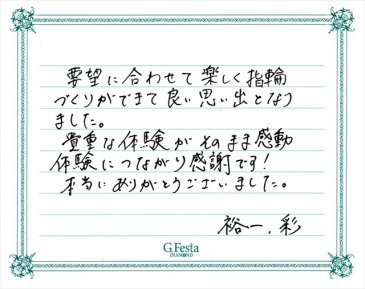 要望に合わせて楽しく指輪
づくりができて良い思い出となり
ました。
貴重な体験がそのまま感動
体験につながり感謝です!
本当にありがとうございました。
裕一、彩
G.Festa
DIAMOND